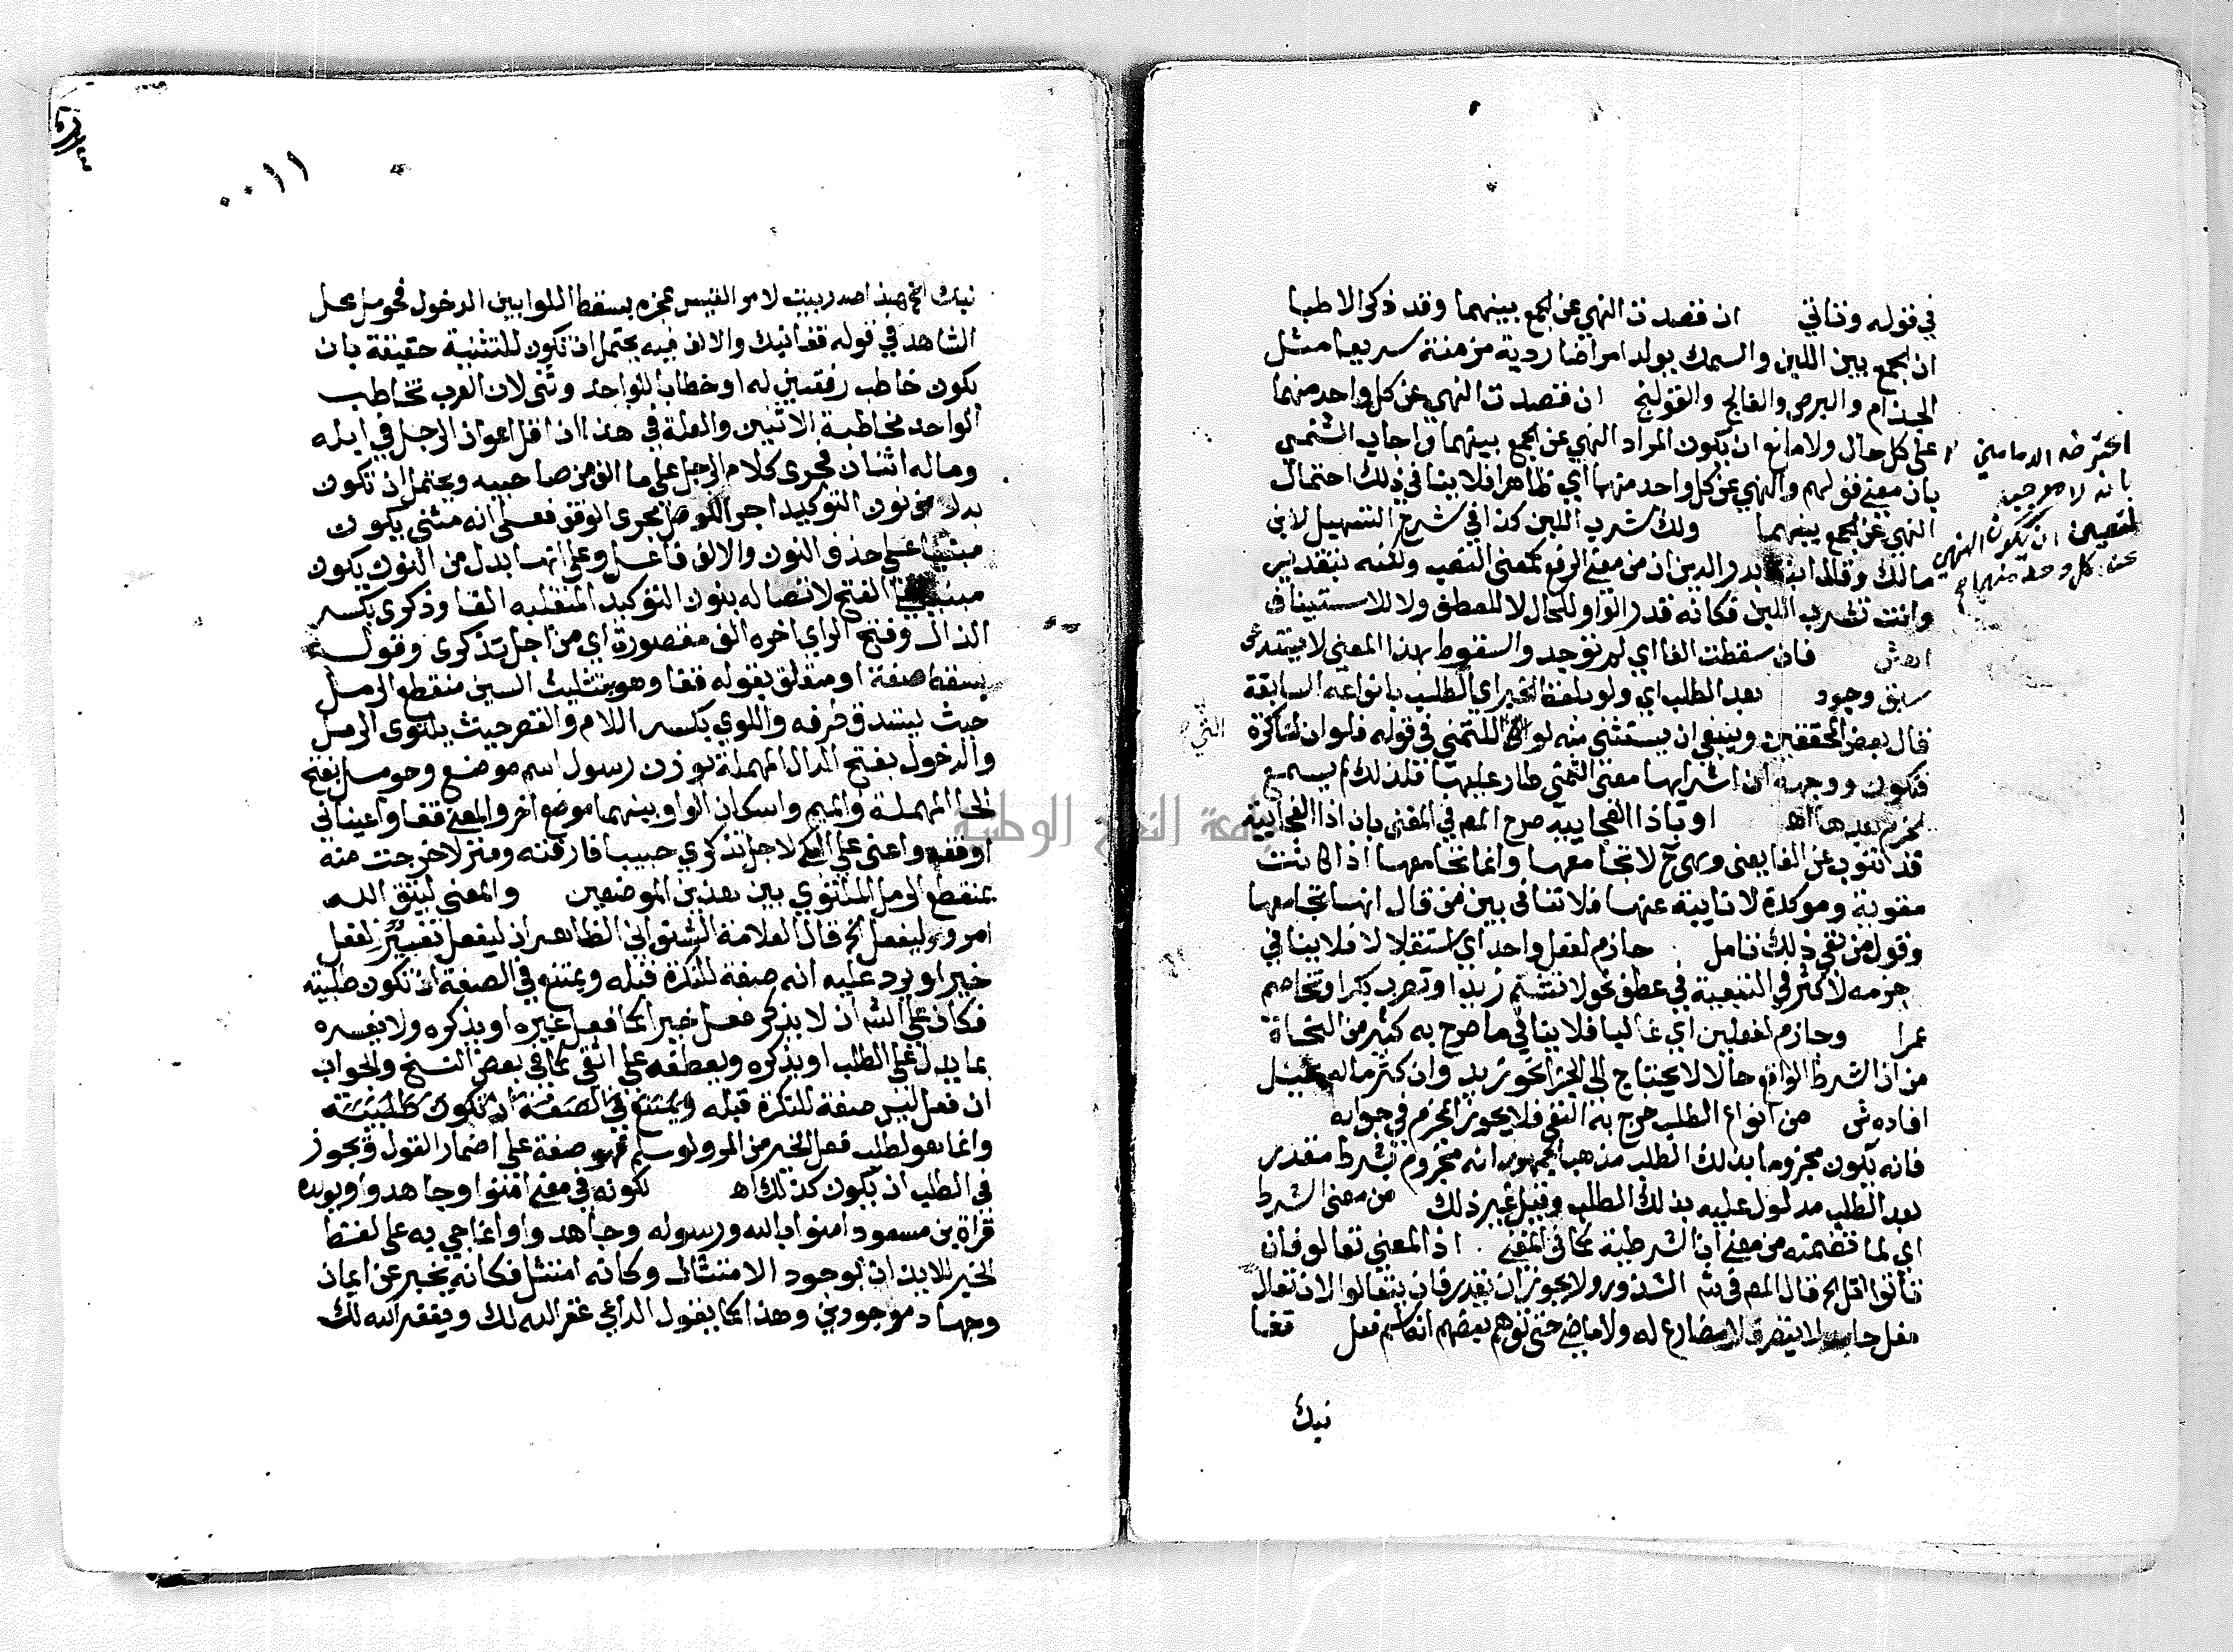 في قوله وتاتي ان قصدت النهي عن الجمع بينهما وقد ذكر الاطبا
ان الجمع بين اللبن والسمك يولد امراضا ردية مزمنة سريعا مثل
الجذام والبرص والفالج والقولنج ان قصدت النهي عن كل واحد منهما
على كل حال ولا مانع ان يكون المراد النهي عن الجمع بينهما واجاب الشمني
بان معنى قولهم والنهي عن كل واحد منهما اي ظاهرا فلا ينافي ذلك احتمال
النهي عن الجمع بينهما ولك شرب اللبن كذا في شرح التسهيل لابن
مالك وقال ابنه بدر الدين ان من معنى الرفع كمعنى النصب ولكنه بتقدير
وانت تشرب اللبن فكانه قدر الواو للحال لا للعطف ولا للاستيناف
اهش فان سقطت الفا اي لم توجد والسقوط بهذا المعنى لا يستدعي
سبق وجود بعد الطلب اي ولو بلفظ الخبر اي الطلب بانواعه السابقة
قال بعض المحققين وينبغي ان يستثنى منه لو التي للتمني في قوله فلو ان لنا كرة
فنكون ووجهه ان اشرابها معنى التمني طار عليها فلذلك لم يسمع
الجزم بعدها اهـ او باذا الفجاييه صرح المص في المغنى بان اذا الفجاييه
قد تنوب عن الفا يعني وهي ح لا تجامعها وانما تجامعها اذا كانت
مقوية وموكدة لا نايبة عنها فلا تنافي بين من قال انها تجامعها
وقول من نفى ذلك تامل جازم لفعل واحد اي استقلالا فلا ينافي
جزمه لاكثر في التبعية في عطف نحو لا تشتم زيدا وتضرب بكرا وتخاصم
عمرا وجازم لفعلين اي غالبا فلا ينافي ما صرح به كثير من النحاة
من ان الشرط الواقع حالا لا يحتاج الى الجزا نحو زيد وان كثر ماله بخيل
افاده ش من انواع الطلب خرج به النفي فلا يجوز الجزم في جوابه
فانه يكون مجزوما بذلك الطلب مذهب الجمهور انه مجزوم بشرط مقدر
بعد الطلب مدلول عليه بذلك الطلب وقيل غير ذلك من معنى الشرط
اي لما تضمنته من معنى ان الشرطية كما في المغني اذ المعنى تعالوا فان
تاتوا اتل الخ قال المص في شرح الشذور ولا يجوز ان يقدر فان تتعالوا لان تعال
فعل جامد لا يتصرف لا مضارع له ولا ماضي حتى توهم بعضهم انه اسم فعل قفا
نبك
اعترضه الدماميني
بانه لا موجب
لتعيين ان يكون النهي
عن كل واحد منهما
نبك الخ هذا صدر بيت لامرء القيس عجزه بسقط اللوا بين الدخول فحومل محل
الشاهد في قوله قفا نبك والالف فيه يحتمل ان تكون للتثنية حقيقة بان
يكون خاطب رفقيين له او خطابا للواحد وثنى لان العرب تخاطب
الواحد مخاطبة الاثنين والعلة في هذا ان اقل اعوان الرجل في ابله
وماله اثنان فجرى كلام الرجل على ما الف من صاحبيه ويحتمل ان تكون
بدلا من نون التوكيد اجرا للوصل مجرى الوقف فعلى انه مثنى يكون
مبنيا على حذف النون والالف فاعل وعلى انها بدل من النون يكون
مبنيا الفتح لاتصاله بنون التوكيد المنقلبه الفا وذكرى بكسر
الذال وفتح الراي اخره الف مقصورة اي من اجل تذكري وقوله
بسقط صفة او متعلق بقوله قفا وهو بتثليث السين منقطع الرمل
حيث يستدق طرفه واللوي بكسر اللام والقصر حيث يلتوى الرمل
والدخول بفتح الدال المهملة بوزن رسول اسم موضع وحومل بفتح
الحا المهملة والميم واسكان الواو بينهما موضع اخر والمعنى قفا واعيناني
اوقف واعني على البكا لاجل تذكري حبيبا فارقته ومنزلا خرجت منه
بمنقطع الرمل الملتوي بين هذين الموضعين والمعنى ليتق الله
امرو وليفعل الخ قال العلامة الشنواني الظاهر ان ليفعل تفسير لفعل
خيرا ويرد عليه انه صفة للنكرة قبله ويمتنع في الصفة ان تكون طلبية
فكان على الش ان لا يذكر فعل خيرا كما فعل غيره او يذكره ولا يفسره
بما يدل على الطلب او يذكره ويعطفه على اتقى كما في بعض النسخ والجواب
ان فعل ليس صفة للنكرة قبله ويمتنع في الصفة ان تكون طلبية
وانما هو لطلب فعل الخير من المر ولو سلم فهو صفة على اضمار القول ويجوز
في الطلب ان يكون كذلك اهـ لكونه في معنى امنوا وجاهدوا ويويده
قراة بن مسعود امنوا بالله ورسوله وجاهدوا وانما جي به على لفظ
الخبر للايذان بوجود الامتثال وكانه امتثل فكانه يخبر عن ايمان
وجهاد موجودين وهذا كما يقول الداعي غفر الله لك ويغفر الله لك